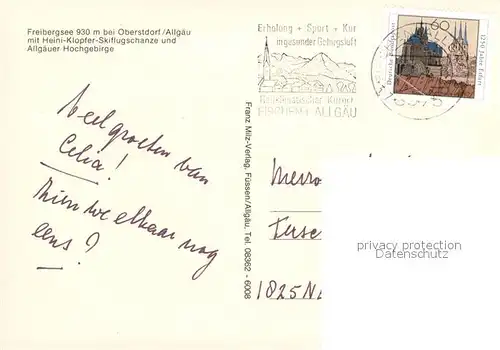 Freibergsee 930 m bei Oberstdorf/Allgäu
mit Heini-Klopfer-Skiflugschanze und
Allgäuer Hochgebirge
Erholung + Sport + Kur
in gesunder Gebirgsluft
Heilklimatischer Kurort
FISCHEN i. ALLGÄU
60
Deutsche Bundespost
1250 Jahre Erfurt
Veel groeten van
Celia!
Zien we elkaar nog
eens?
Franz Milz-Verlag, Füssen/Allgäu, Tel. 08362 - 6008
1825 N
privacy protection
Datenschutz